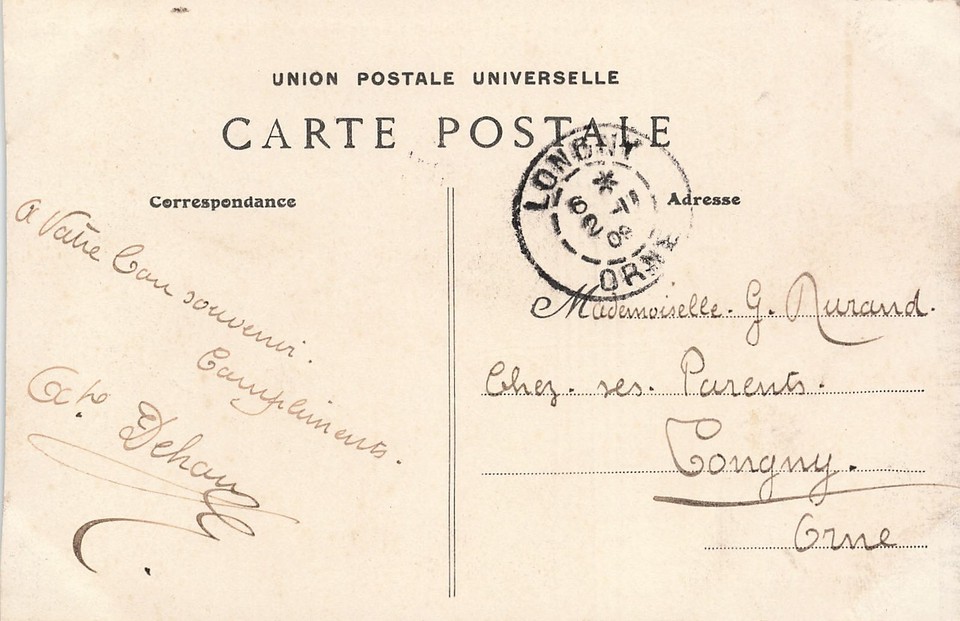 UNION POSTALE UNIVERSELLE
CARTE POSTALE
Correspondance
Adresse
LONGNY
ORNE
a Votre bon souvenir.
Compliments.
Mademoiselle. G. Durand.
Chez. ses. Parents.
Longny.
Orne